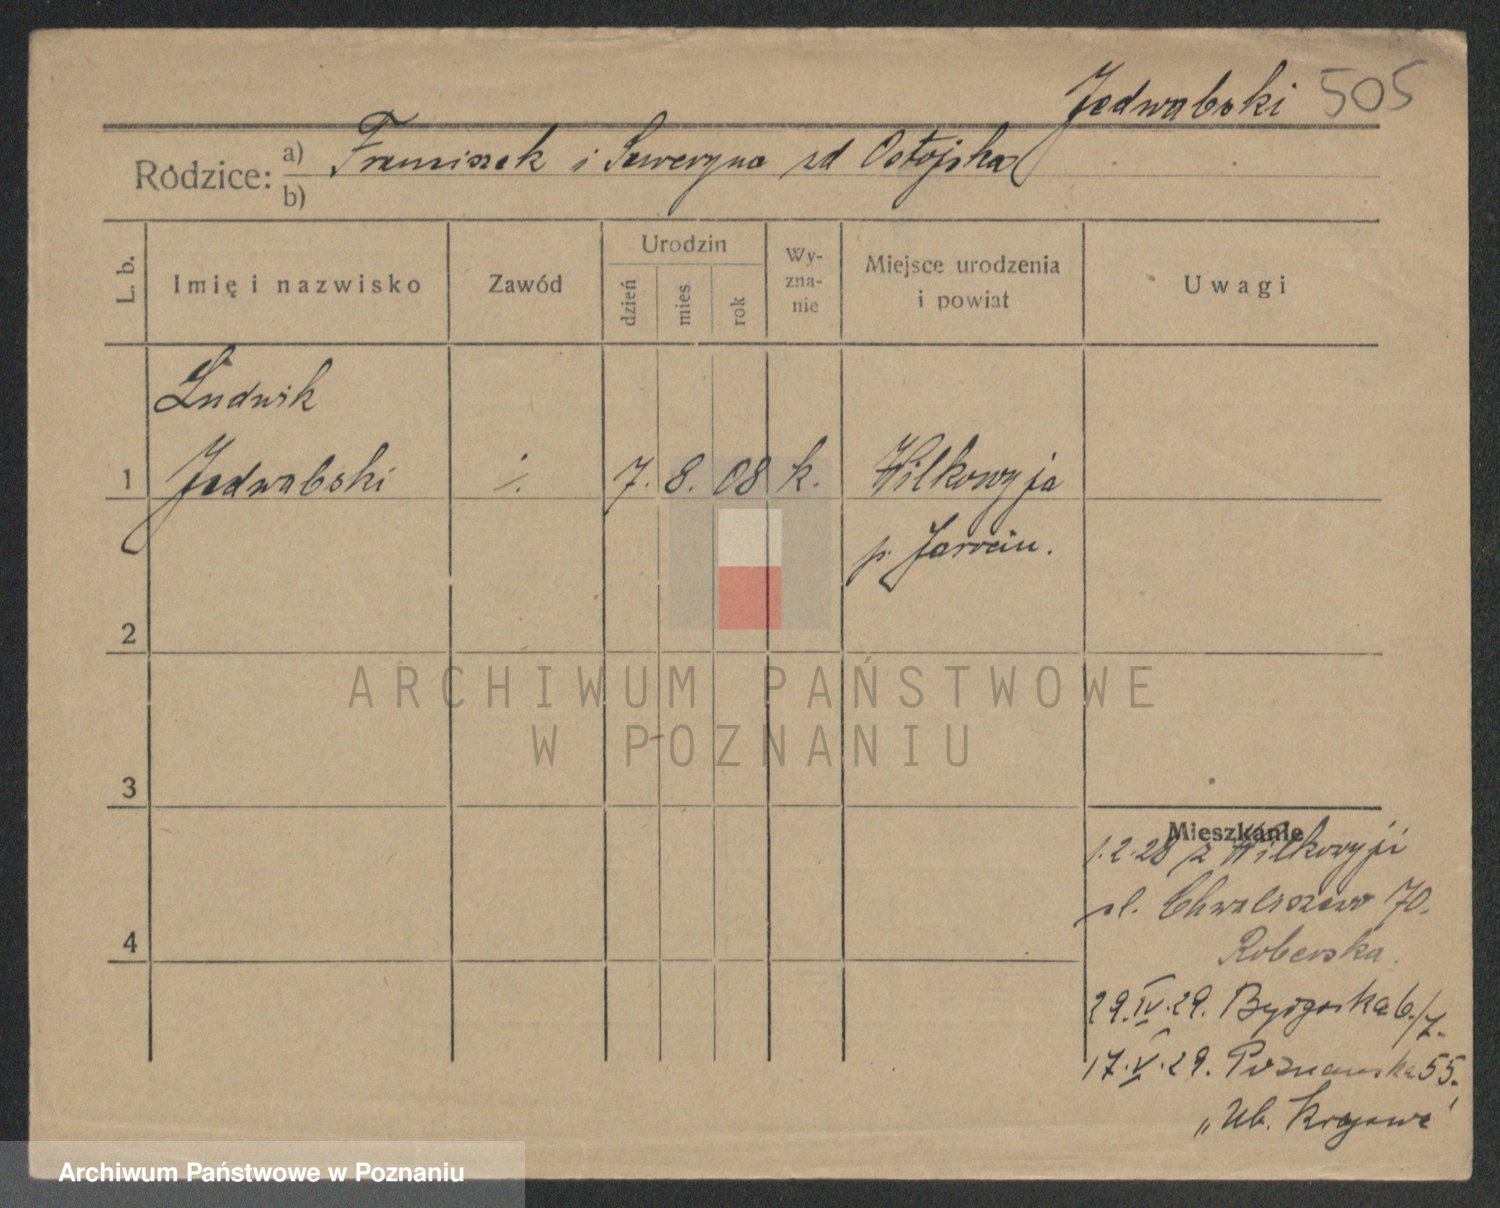 Jedwabski 505
Rodzice: a) Franciszek i Seweryna zd Ostojska
b)
L. b. Imię i nazwisko Zawód Urodzin dzień mies. rok Wy-zna-nie Miejsce urodzenia i powiat Uwagi
Ludwik
1 Jedwabski ·/. 7. 8. 08 k. Wilkowyja
p. Jarocin.
2
ARCHIWUM PAŃSTWOWE
W POZNANIU
3
Mieszkanie
1.2.28 z Wilkowyji
Chwaliszewo 70.
29.IV.29. Bydgoska 6/7.
17.V.29. Poznańska 55.
„Ub. Krajowa"
4
Archiwum Państwowe w Poznaniu